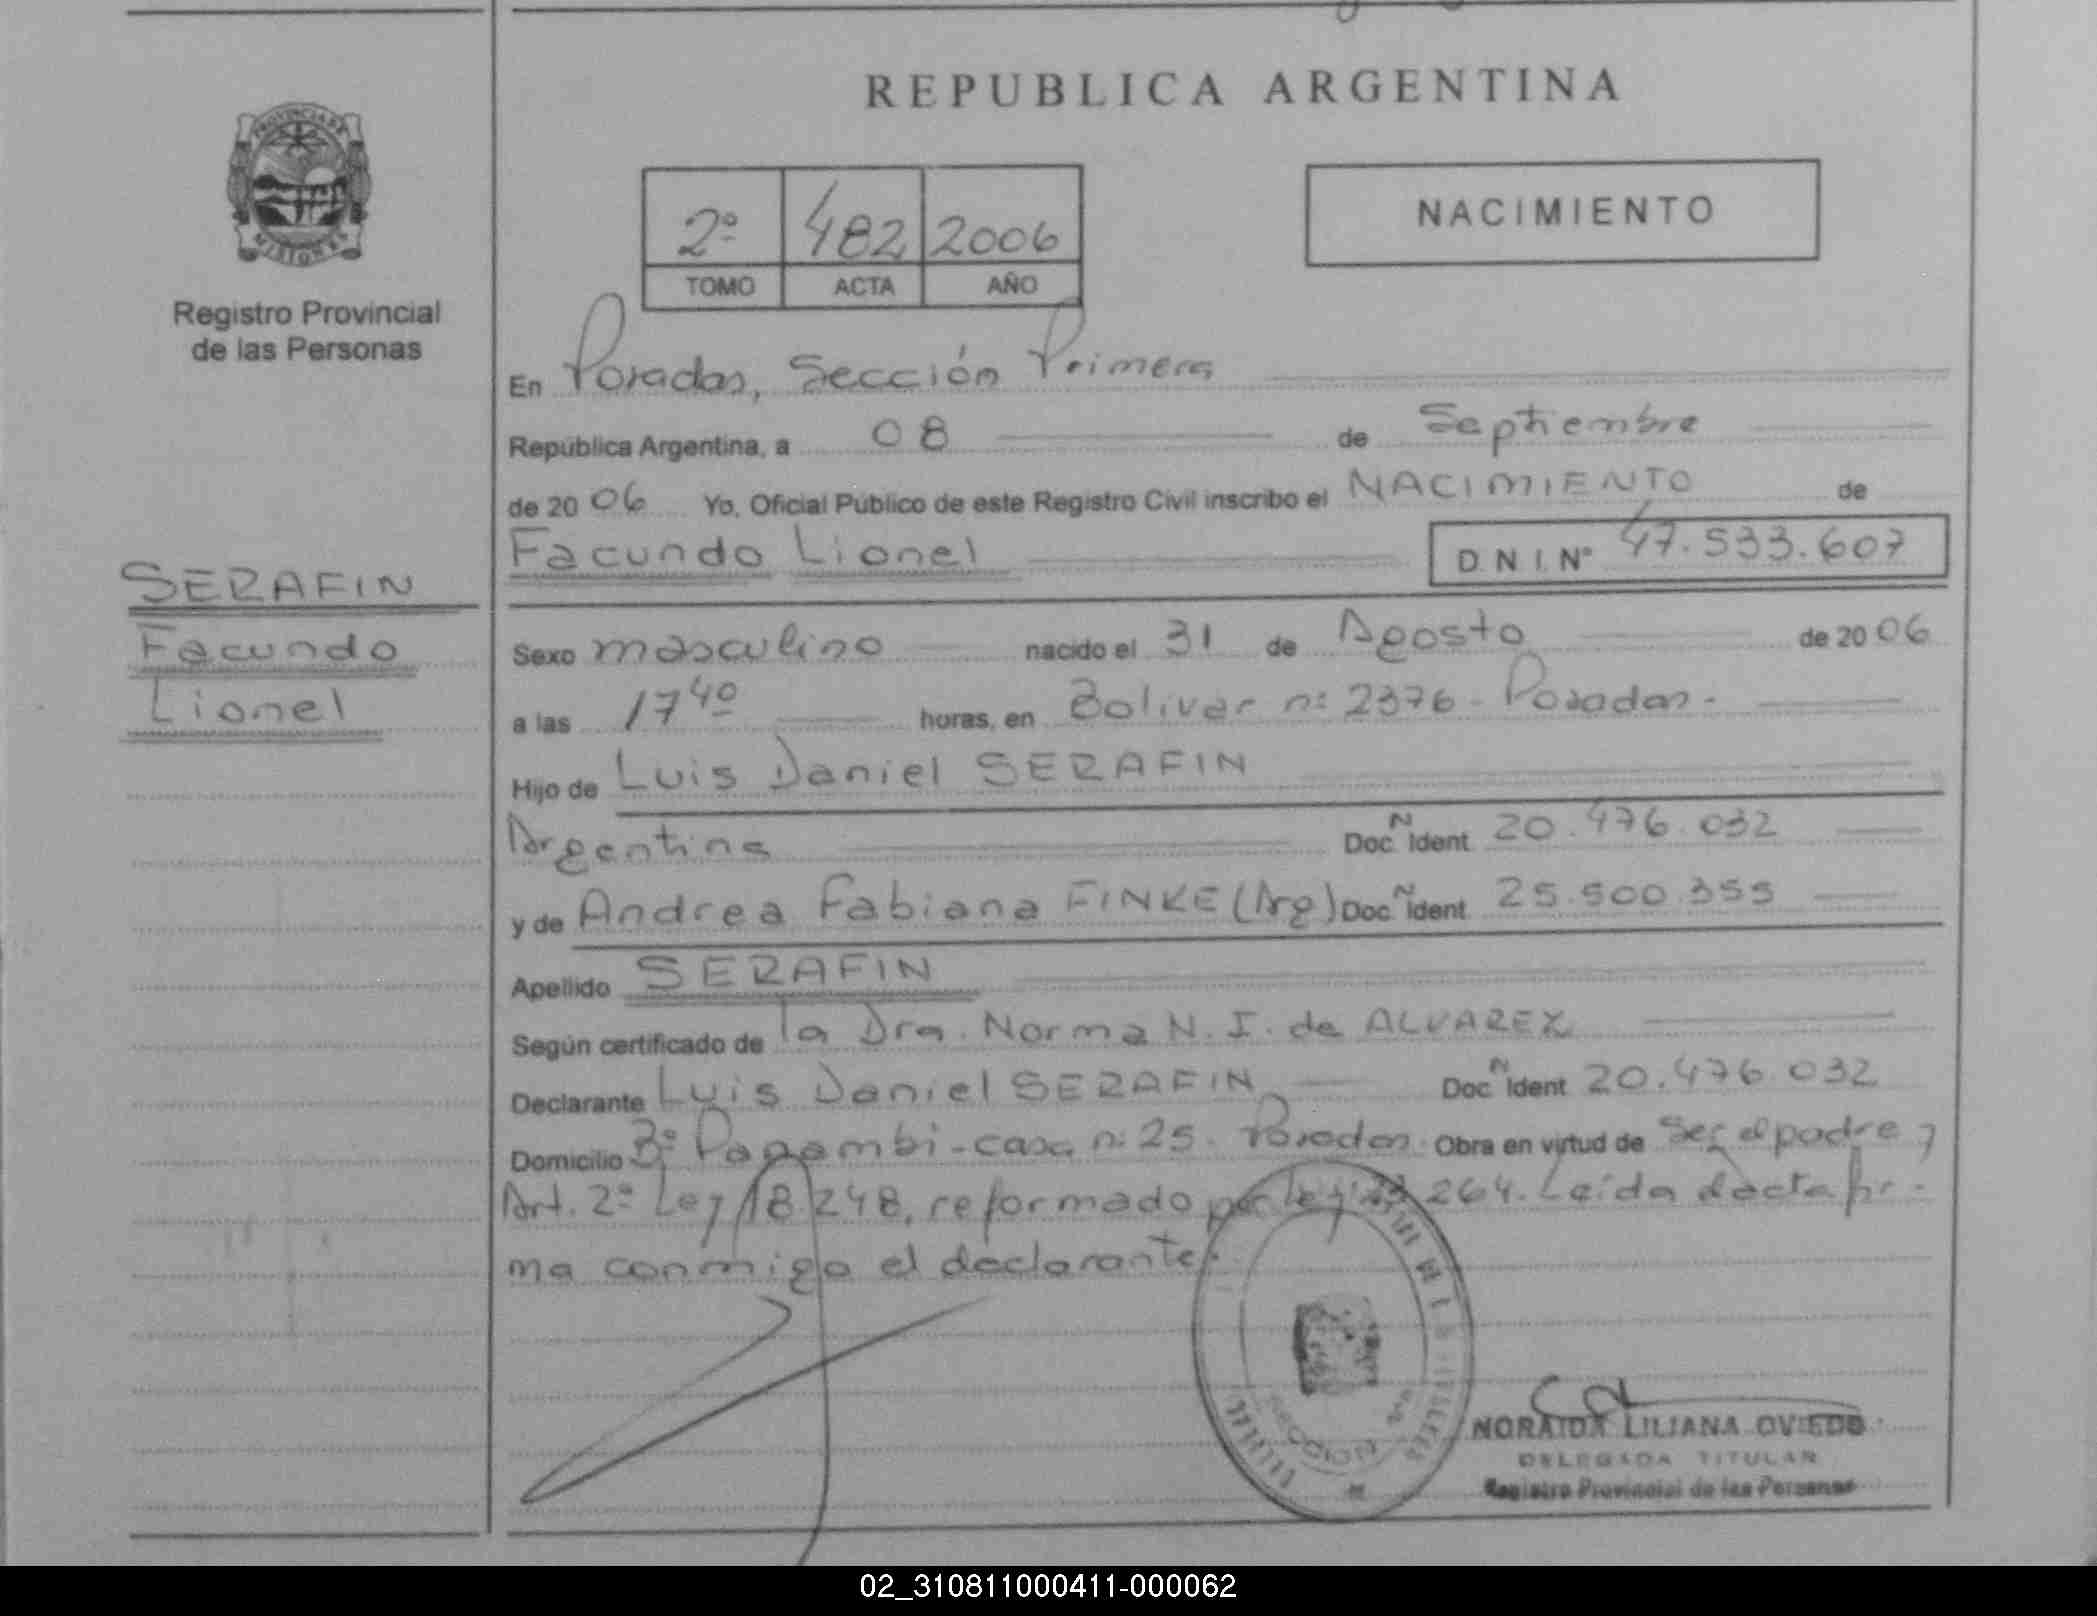 REPUBLICA ARGENTINA
PROVINCIA DE
MISIONES
Registro Provincial
de las Personas
2º 482 2006
TOMO ACTA AÑO
NACIMIENTO
En Posadas, Sección Primera
República Argentina, a 08 de Septiembre
de 2006 Yo, Oficial Público de este Registro Civil inscribo el NACIMIENTO de
Facundo Lionel D.N.I.Nº 47.533.607
SERAFIN
Facundo
Lionel
Sexo masculino nacido el 31 de Agosto de 2006
a las 17 40 horas, en Bolivar nº 2376 - Posadas -
Hijo de Luis Daniel SERAFIN
Argentina Doc N Ident 20.476.032
y de Andrea Fabiana FINKE (Arg) Doc N Ident 25.500.355
Apellido SERAFIN
Según certificado de la Dra. Norma N. I. de ALVAREZ
Declarante Luis Daniel SERAFIN Doc N Ident 20.476.032
Domicilio Bº Panambi - casa nº 25. Posadas. Obra en virtud de Ser el padre y
Art. 2º Ley 18.248, reformado por ley 23.264. Leída el acta fir-
ma conmigo el declarante.
NORAIDA LILIANA OVIEDO
DELEGADA TITULAR
Registro Provincial de las Personas
02_310811000411-000062